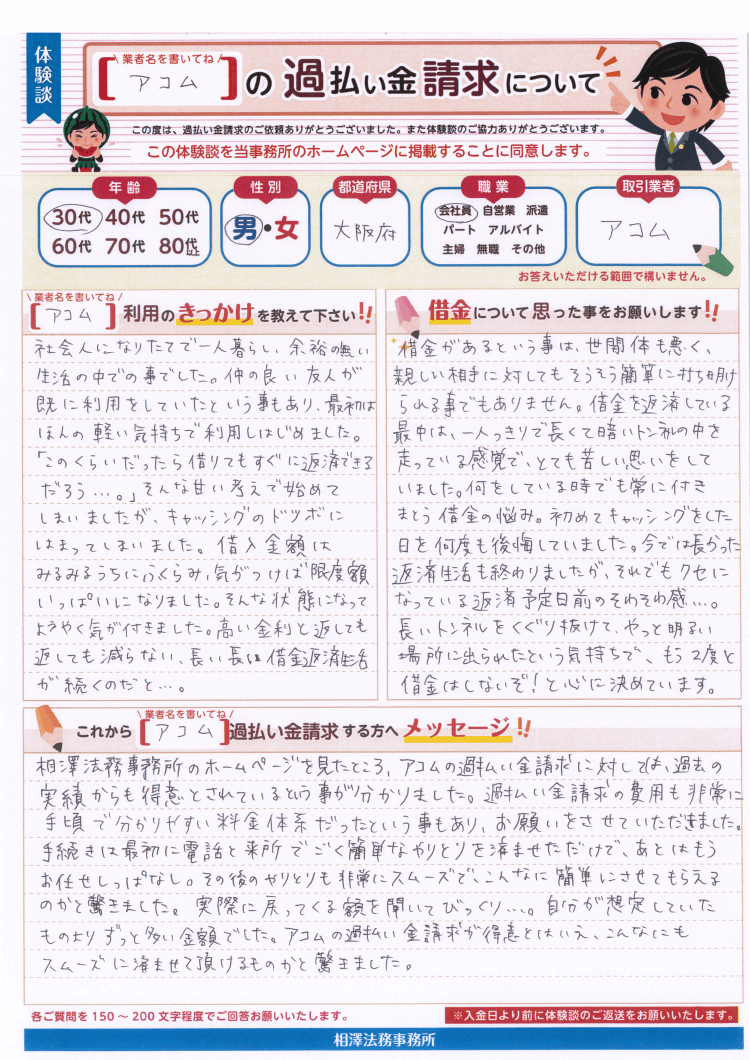 体験談
\ 業者名を書いてね /
【 アコム 】の 過払い金 請求について
この度は、過払い金請求のご依頼ありがとうございました。また体験談のご協力ありがとうございます。
この体験談を当事務所のホームページに掲載することに同意します。
年 齢
30代 40代 50代
60代 70代 80代以上
性 別
男・女
都道府県
大阪府
職 業
会社員 自営業 派遣
パート アルバイト
主婦 無職 その他
取引業者
アコム
お答えいただける範囲で構いません。
\ 業者名を書いてね /
【 アコム 】利用の きっかけ を教えて下さい!!
社会人になりたてで一人暮らし、余裕の無い
生活の中での事でした。仲の良い友人が
既に利用をしていたという事もあり、最初は
ほんの軽い気持ちで利用しはじめました。
「このくらいだったら借りてもすぐに返済できる
だろう…。」そんな甘い考えで始めて
しまいましたが、キャッシングのドツボに
はまってしまいました。借入金額は
みるみるうちにふくらみ、気がつけば限度額
いっぱいになりました。そんな状態になって
ようやく気が付きました。高い金利と返しても
返しても減らない、長い長い借金返済生活
が続くのだと…。
借金について思った事をお願いします!!
借金があるという事は、世間体も悪く、
親しい相手に対してもそうそう簡単に打ち明け
られる事でもありません。借金を返済している
最中は、一人っきりで長くて暗いトンネルの中を
走っている感覚で、とても苦しい思いをして
いました。何をしている時でも常に付き
まとう借金の悩み。初めてキャッシングをした
日を何度も後悔していました。今では長かった
返済生活も終わりましたが、それでもクセに
なっている返済予定日前のそわそわ感…。
長いトンネルをくぐり抜けて、やっと明るい
場所に出られたという気持ちで、もう2度と
借金はしないぞ!と心に決めています。
\ 業者名を書いてね /
これから【 アコム 】過払い金請求する方へ メッセージ!!
相澤法務事務所のホームページを見たところ、アコムの過払い金請求に対しては、過去の
実績からも得意とされているという事が分かりました。過払い金請求の費用も非常に
手頃で分かりやすい料金体系だったという事もあり、お願いをさせていただきました。
手続きは最初に電話と来所でごく簡単なやりとりを済ませただけで、あとはもう
お任せしっぱなし。その後のやりとりも非常にスムーズで、こんなに簡単にさせてもらえる
のかと驚きました。実際に戻ってくる額を聞いてびっくり…。自分が想定していた
ものよりずっと多い金額でした。アコムの過払い金請求が得意とはいえ、こんなにも
スムーズに済ませて頂けるものかと驚きました。
各ご質問を150〜200文字程度でご回答お願いいたします。
※入金日より前に体験談のご返送をお願いいたします。
相澤法務事務所